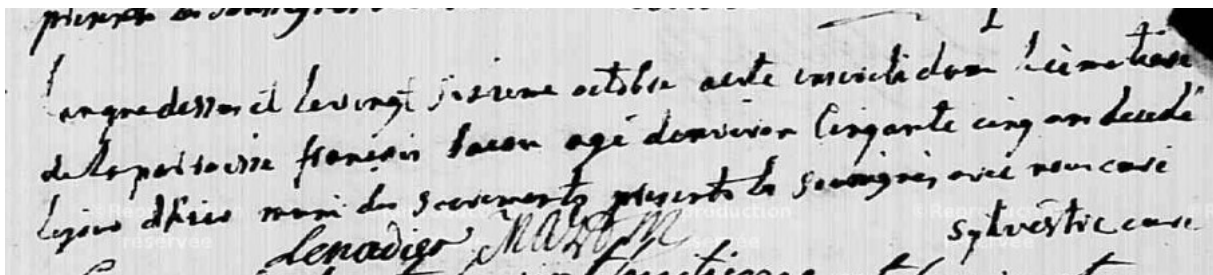 presents les soussignés
Lan que dessus et le vingt sixieme octobre a este enseveli dans le cimetiere
de la parroisse françois bacon agé denviron cinqante cinq ans decedé
le jour dhier muni des sacrements presents les soussignes avec nous curé
sylvestre curé
Lenadier